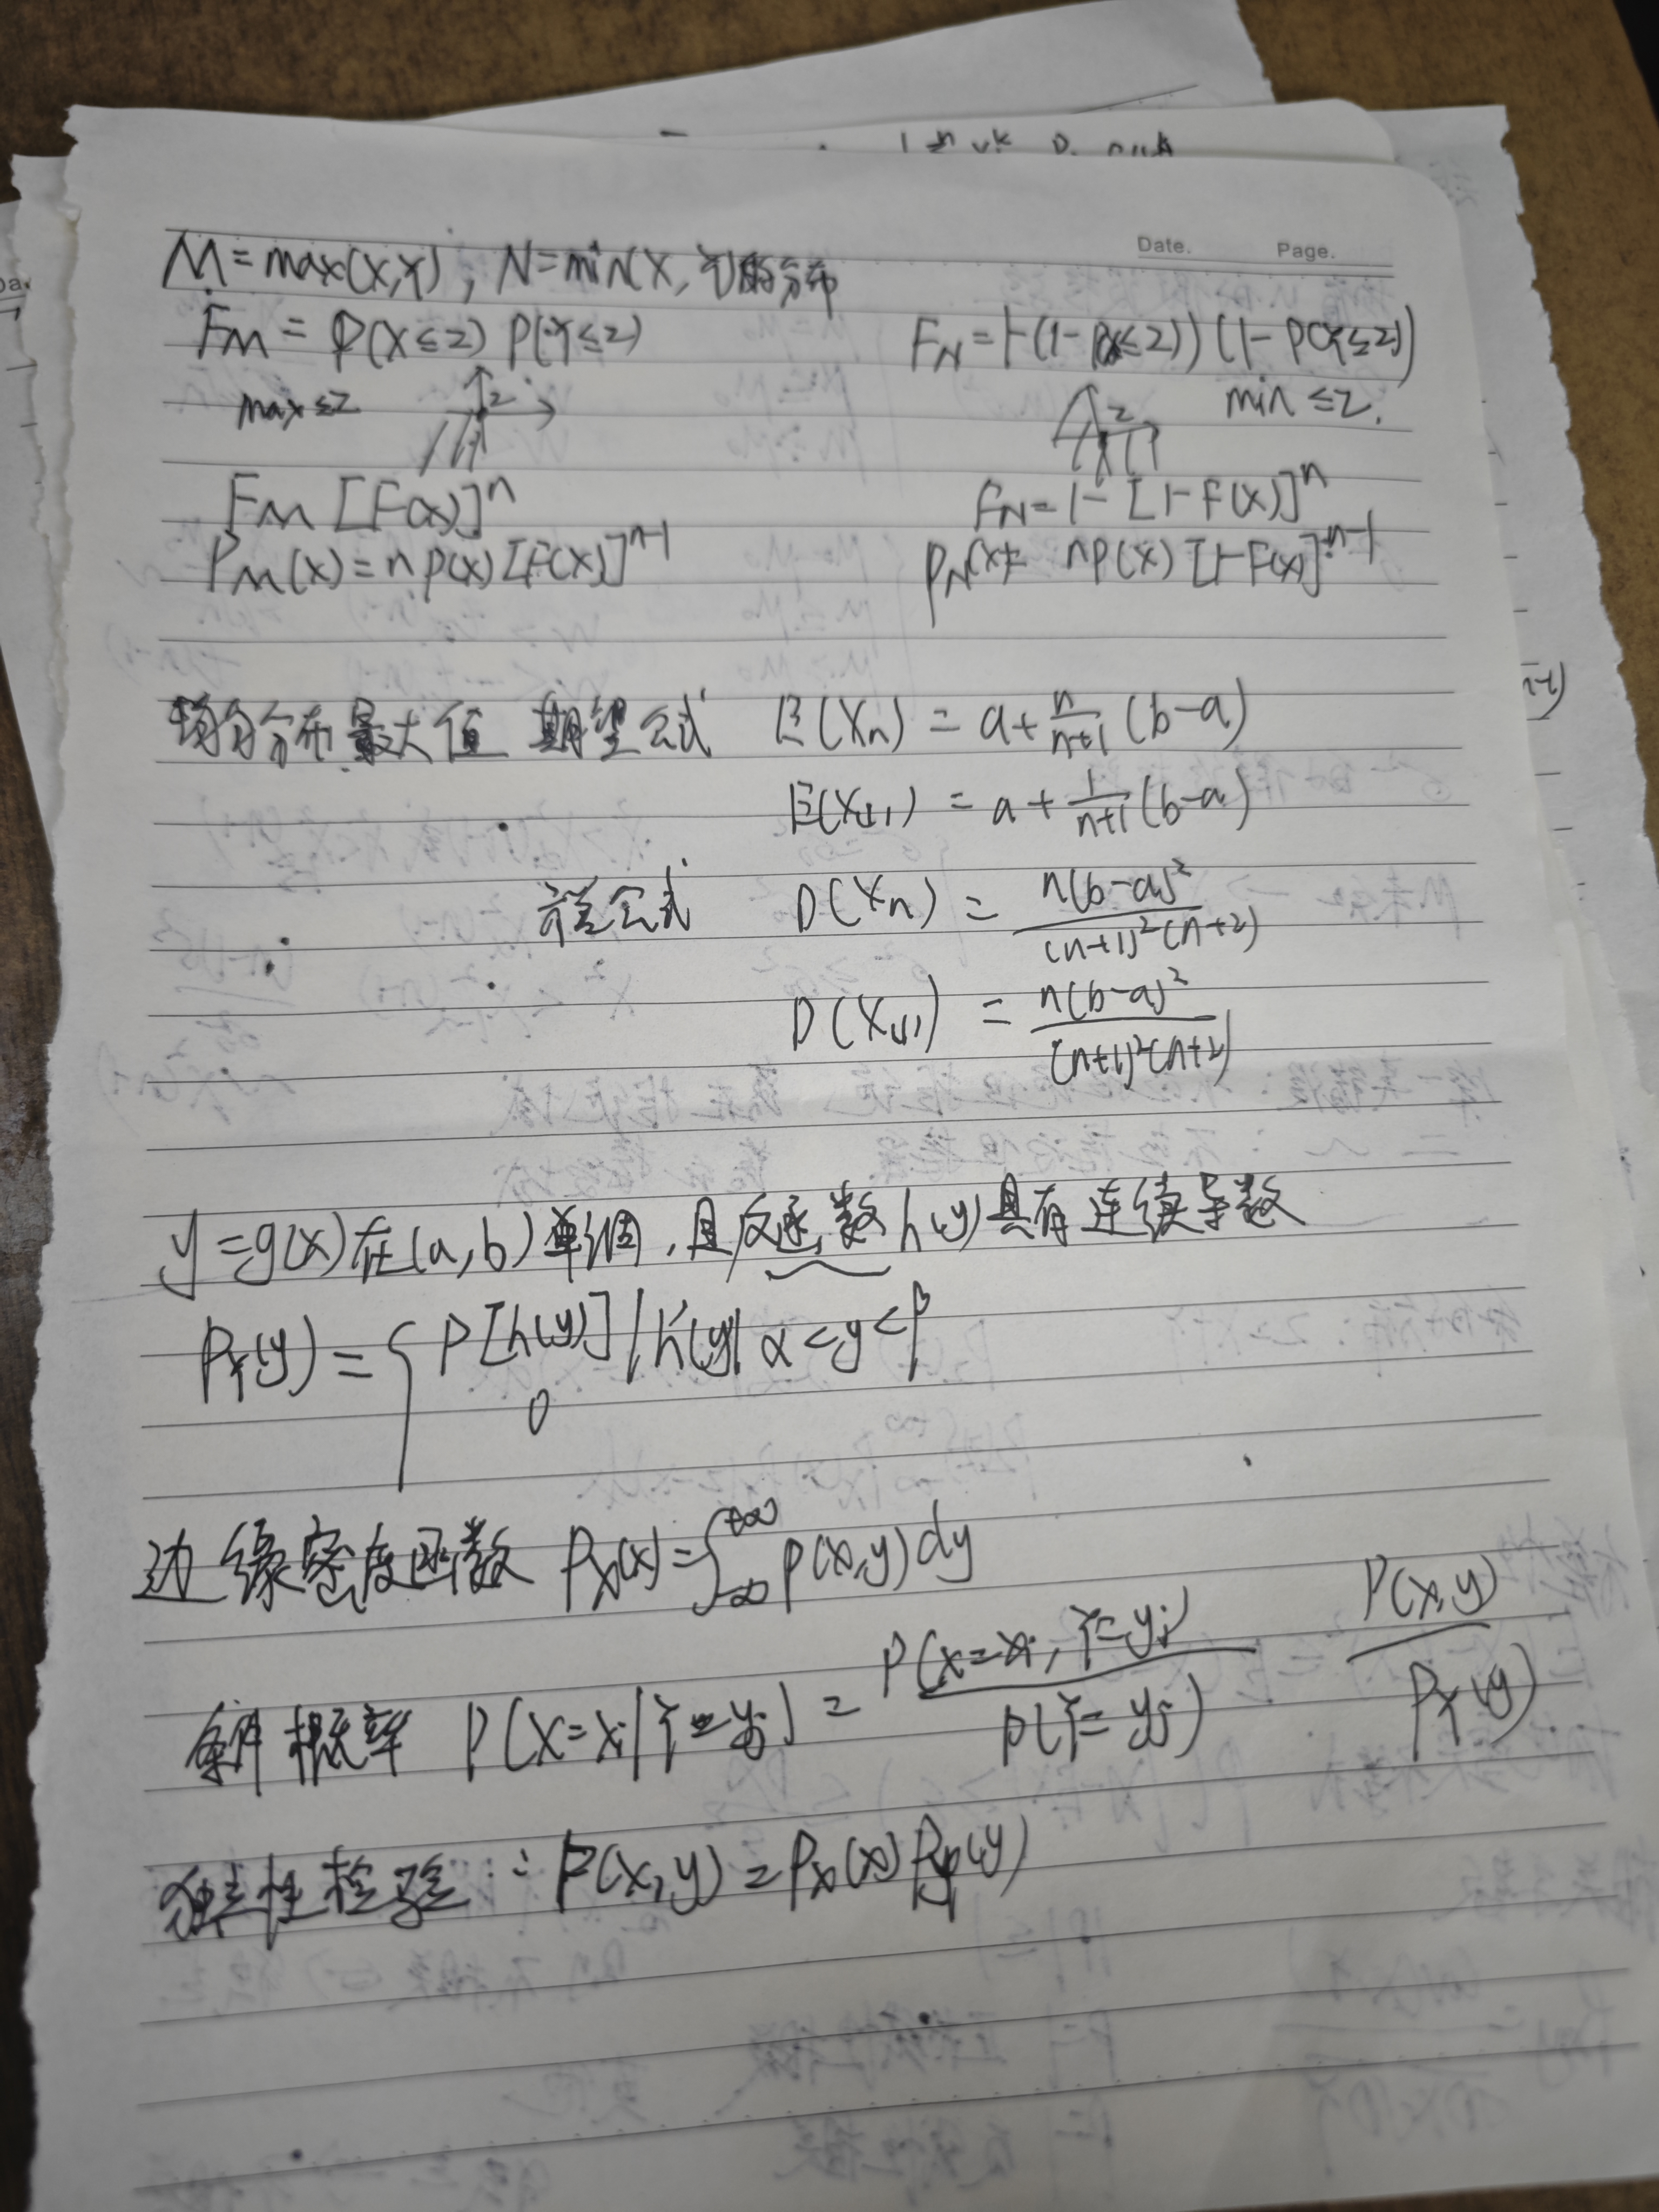 Date. Page.
M=max(X,Y), N=min(X,Y)的分布
F_M = P(X≤z) P(Y≤z) F_N=1-(1-P(X≤z))(1-P(Y≤z))
max≤z z z min≤z.
F_M [F(x)]^n F_N=1-[1-F(x)]^n
P_M(x)=np(x)[F(x)]^{n-1} P_N(x)= np(x)[1-F(x)]^{n-1}
均匀分布最大值 期望公式 E(X_n) = a+\frac{n}{n+1}(b-a)
E(X_{(1)}) = a+\frac{1}{n+1}(b-a)
方差公式 D(X_n) = \frac{n(b-a)^2}{(n+1)^2(n+2)}
D(X_{(1)}) = \frac{n(b-a)^2}{(n+1)^2(n+2)}
y=g(x)在(a,b)单调,且反函数h(y)具有连续导数
P_Y(y)={ P[h(y)]|h'(y)| α<y<β
0
边缘密度函数 P_X(x)=∫_{-∞}^{+∞} p(x,y)dy
条件概率 P(X=x_i|Y=y_j) = \frac{P(X=x_i, Y=y_j)}{P(Y=y_j)} \frac{P(x,y)}{P_Y(y)}
独立性检验: P(x,y)=P_X(x)P_Y(y)